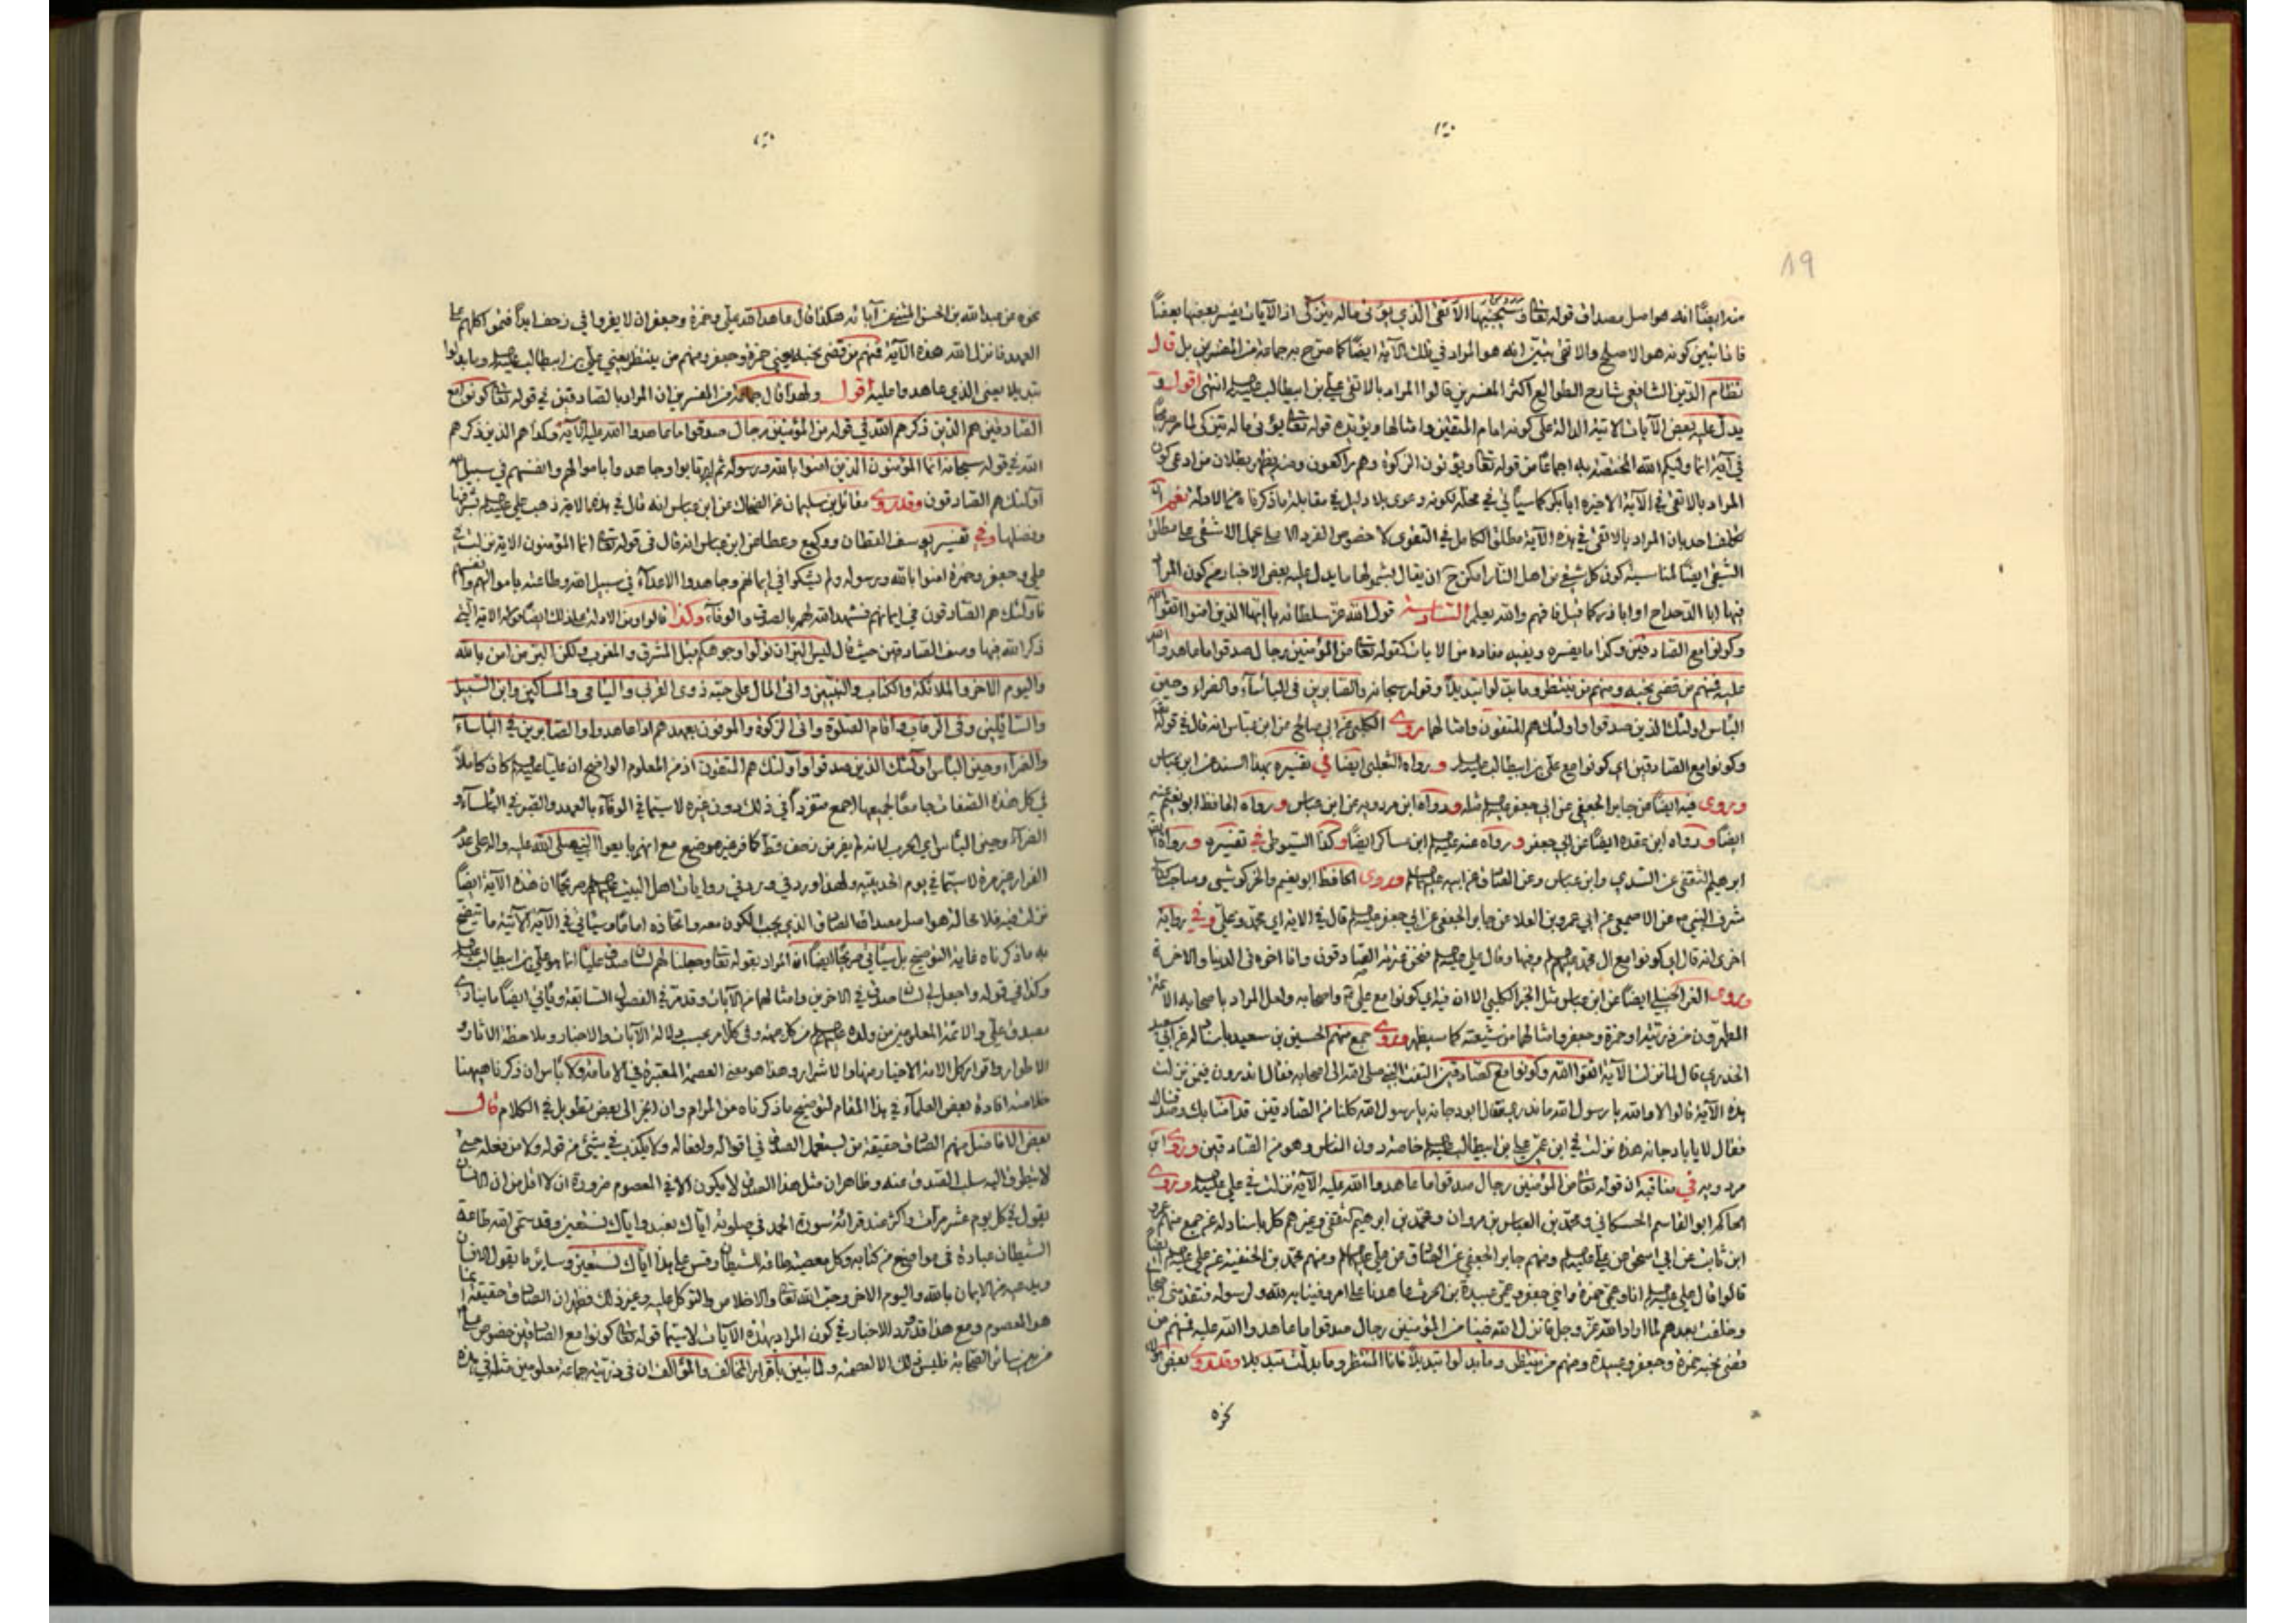 ١٩
منه ايضًا انه هو اصل مصداق قوله تعا وسيجنبها الأتقى الذي يؤتى ماله يتزكى اذ الآيات يفسر بعضها بعضًا
فاذا تبين كونه هو الاصلح والاتقى تبين انه هو المراد في تلك الآية ايضًا كما صرح به جماعة من المفسرين بل قال
نظام الدين الشافعي شارح الطوالع اكثر المفسرين قالوا المراد بالاتقى علي بن ابيطالب انتهى اقول و
يدل عليه بعض الآيات الآتية الدالة على كونه امام المتقين وامثالها ويؤيده قوله تعا يؤتى ماله يتزكى لما مر
في آية انما وليكم الله المختصة به اجماعًا من قوله تعا ويؤتون الزكوة وهم راكعون ومنه يظهر بطلان من ادعى كون
المراد بالاتقى في الآية الاخيرة ابا بكر كما سيأتي في محله لكونه دعوى بلا دليل في مقابلة ما ذكرناه من الادلة نعم
احد بان المراد بالاتقى في هذه الآية مطلق الكامل في التقوى لا خصوص الفرد كما حمل الاشقى على مطلق
الشقي ايضًا لمناسبة كون كل شقي من اهل النار امكن ح ان يقال بشمولها ما يدل عليه بعض الاخبار من كون المراد
فيها ابا الدحداح او ابا ذر كما قيل فافهم والله يعلم السادسة قول الله عز سلطانه يا ايها الذين امنوا اتقوا الله
وكونوا مع الصادقين وكذا ما يفسره ويفيد مفاده من الايات كقوله تعا من المؤمنين رجال صدقوا ما عاهدوا الله
عليه فمنهم من قضى نحبه ومنهم من ينتظر وما بدلوا تبديلًا وقوله سبحانه والصابرين في الباسآء والضراء وحين
الباس اولئك الذين صدقوا واولئك هم المتقون وامثالها روى الكلبي عن ابي صالح عن ابن عباس انه قال في قوله تعا
وكونوا مع الصادقين اي كونوا مع علي بن ابيطالب ورواه الثعلبي ايضا في تفسيره بهذا السند عن ابن عباس
وروى فيه ايضًا عن جابر الجعفي عن ابي جعفر مثله ورواه ابن مردويه عن ابن عباس ورواه الحافظ ابو نعيم عنه
ايضًا ورواه ابن عقدة ايضًا عن ابي جعفر ورواه عنه ابن عساكر ايضًا وكذا السيوطي في تفسيره ورواه
ابرهيم الثقفي عن السدي وابن عباس وعن الصادق عن ابيه وروى الحافظ ابو نعيم والخركوشي وصاحب كتاب
شرف النبي ص عن الاصمعي عن ابي عمرو بن العلا عن جابر الجعفي عن ابي جعفر قال في الاية اي محمد وعلي وفي رواية
اخرى انه قال اي كونوا مع ال محمد وفيها وقال علي فنحن عترته الصادقون وانا اخوه في الدنيا والاخرة
وروى الحنبلي ايضًا عن ابن عباس مثل الخبر الكلبي الا ان فيه اي كونوا مع علي واصحابه ولعل المراد باصحابه الائمة
المطهرون من ذريته او حمزة وجعفر وامثالهما من شيعته كما سيظهر وروى جمع منهم الحسين بن سعيد باسناد له عن ابي سعيد
الخدري قال لما نزلت الآية اتقوا الله وكونوا مع الصادقين التفت النبي صلى الله الى اصحابه فقال اتدرون فيمن نزلت
هذه الآية قالوا لا والله يا رسول الله ما ندري فقال ابو دجانة يا رسول الله كلنا من الصادقين قد امنا بك وصدقناك
فقال لا يابا دجانة هذه نزلت في ابن عمي علي بن ابيطالب خاصة دون الناس وهو من الصادقين وروى ابن
مردويه في مناقبه ان قوله تعا من المؤمنين رجال صدقوا ما عاهدوا الله عليه الآية نزلت في علي وروى
الحاكم ابو القاسم الحسكاني ومحمد بن العباس بن مروان ومحمد بن ابرهيم الثقفي وغيرهم كل باسناد له عن جمع منهم عمرو
ابن ثابت عن ابي اسحق عن علي ومنهم جابر الجعفي عن الصادق عن علي ومنهم محمد بن الحنفية عن علي ايضا
قالوا قال علي انا وعمي حمزة واخي جعفر وعمي عبيدة بن الحرث عاهدنا على امر وفينا به لله ولرسوله فتقدمني
وخلفت بعدهم لما اراد الله عز وجل فانزل الله فينا من المؤمنين رجال صدقوا ما عاهدوا الله عليه فمنهم من
قضى نحبه حمزة وجعفر وعبيدة ومنهم من ينتظر وما بدلوا تبديلًا فانا المنتظر وما بدلت تبديلا وقد روى بعض هؤلاء
نحوه
نحوه عن عبدالله بن الحسن المثنى عن آبائه هكذا قال عاهد الله علي وحمزة وجعفر ان لا يفروا في زحف ابدًا فتموا كلهم على
العهد فانزل الله هذه الآية فمنهم من قضى نحبه يعني حمزة وجعفر ومنهم من ينتظر يعني علي بن ابيطالب وما بدلوا
تبديلا يعني الذي عاهدوا عليه اقول ولهذا قال جماعة من المفسرين ان المراد بالصادقين في قوله تعا كونوا مع
الصادقين هم الذين ذكرهم الله في قوله من المؤمنين رجال صدقوا ما عاهدوا الله عليه الآية وكذا هم الذين ذكرهم
الله في قوله سبحانه انما المؤمنون الذين امنوا بالله ورسوله ثم لم يرتابوا وجاهدوا باموالهم وانفسهم في سبيل الله
اولئك هم الصادقون وقد روى مقاتل بن سليمان عن الضحاك عن ابن عباس انه قال في هذه الاية ذهب علي بشرفها
وفضلها وفي تفسير يوسف القطان ووكيع وعطا عن ابن عباس انه قال في قوله تعا انما المؤمنون الاية نزلت في
علي وجعفر وحمزة امنوا بالله ورسوله ولم يشكوا في ايمانهم وجاهدوا الاعدآء في سبيل الله وطاعته باموالهم وانفسهم
فاولئك هم الصادقون في ايمانهم فشهد الله لهم بالصدق والوفآء وكذا قالوا ومن الادلة على ذلك ايضًا قوله الاية التي
ذكر الله فيها وصف الصادقين حيث قال ليس البر ان تولوا وجوهكم قبل المشرق والمغرب ولكن البر من امن بالله
واليوم الاخر والملائكة والكتاب والنبيين واتى المال على حبه ذوى القربى واليتامى والمساكين وابن السبيل
والسائلين وفى الرقاب واقام الصلوة واتى الزكوة والموفون بعهدهم اذا عاهدوا والصابرين في الباسآء
والضرآء وحين الباس اولئك الذين صدقوا واولئك هم المتقون اذ من المعلوم الواضح ان عليا كان كاملاً
في كل هذه الصفات جامعًا لجميعها اجمع متفردًا في ذلك دون غيره لا سيما في الوفآء بالعهد والصبر في الباسآء و
الضرآء وحين الباس اي الحرب لانه لم يفر من زحف قط كما فر غيره موضع مع انهم بايعوا النبي صلى الله عليه واله على عدم
الفرار غير مرة لا سيما في يوم الحديبية ولهذا ورد في روايات اهل البيت صريحًا ان هذه الآية ايضًا
نزلت فيه فلا محالة هو اصل مصداق الصادق الذي يجب الكون معه واتخاذه امامًا وسيأتي في الآية الآتية ما يتضح
به ما ذكرناه غاية التوضيح بل سيأتي صريحًا ايضًا ان المراد بقوله تعا وجعلنا لهم لسان صدق عليًا انما هو علي بن ابيطالب
وكذا في قوله واجعل لي لسان صدق في الاخرين وامثالهما من الآيات وقد مر في الفصول السابقة ويأتي ايضًا ما ينادي
بصدق علي والائمة المعلومين من ولده من كل جهة وفي كل امر بحسب دلالة الآيات والاخبار وملاحظة الاثار و
الاطوار واقوال كل الامة الاخيار منها والاشرار وهذا هو معنى العصمة المعتبرة في الامامة ولا بأس ان ذكرنا هيهنا
خلاصة افادة بعض العلمآء في هذا المقام لتوضيح ما ذكرناه من المرام وان انجر الى بعض تطويل في الكلام قال
بعض الافاضل منهم الصادق حقيقة من يستعمل الصدق في اقواله وافعاله ولا يكذب في شيئ من قوله ولا من فعله حتى
لا يتطرق اليه سلب الصدق عنه وظاهر ان مثل هذا الصدق لا يكون الا في المعصوم ضرورة ان لا اقل من ان الانسان
يقول في كل يوم عشر مرات واكثر عند قرائة سورة الحمد في صلوته اياك نعبد واياك نستعين وقد سمى الله طاعة
الشيطان عبادة في مواضع من كتابه وكل معصية طاعة للشيطان وقس على هذا اياك نستعين وساير ما يقول الانسان
ويدعيه من الايمان بالله واليوم الاخر وحب الله تعا والاخلاص والتوكل عليه وغير ذلك فظهر ان الصادق حقيقة انما
هو المعصوم ومع هذا قد ورد الاخبار في كون المراد بهذه الآيات لا سيما قوله تعا كونوا مع الصادقين خصوص علي
من بين سائر الصحابة فليس ذلك الا لعصمته ولما تبين باقرار المخالف والمؤالف ان في ذريته جماعة معلومين مثله في هذه